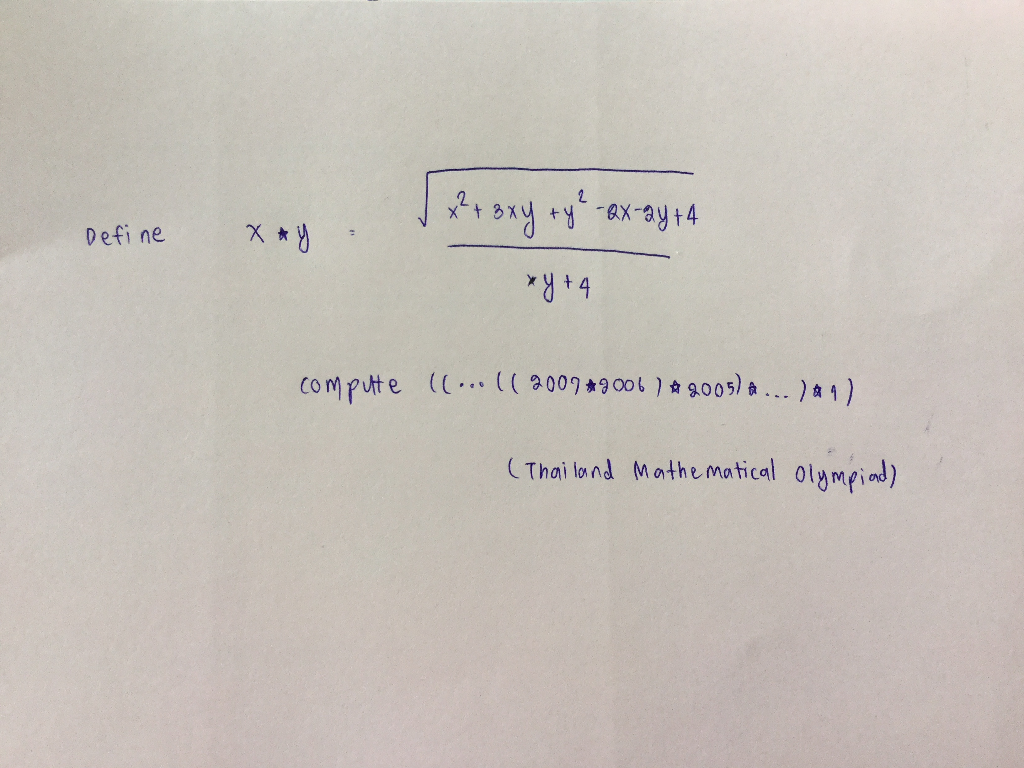 Define x ★ y = √(x² + 3xy + y² - 2x - 2y + 4) / (xy + 4)
compute ((...((2007★2006)★2005)★...)★1)
(Thailand Mathematical Olympiad)